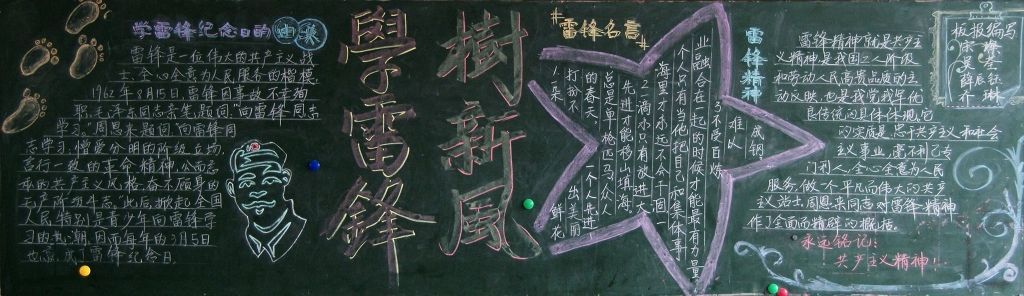 学雷锋纪念日的由来
雷锋是一位伟大的共产主义战
士,全心全意为人民服务的楷模
1962年8月15日,雷锋因事故不幸殉
职,毛泽东同志亲笔题词"向雷锋同志
学习."周恩来题词"向雷锋同
志学习,憎爱分明的阶级立场,
言行一致的革命精神,公而忘
私的共产主义风格,奋不顾身的
无产阶级斗志"此后掀起全国
人民特别是青少年向雷锋学
习的热潮,因而每年的3月5日
也就成了雷锋纪念日.
學雷鋒
樹新風
雷锋名言
1.一朵鲜花
打扮不出美丽
的春天,一个人先进
总是单枪匹马,众人
先进才能移山填海.
2.一滴水只有放进大
海里才永远不会干涸
一个人只有当他把自己和集体事
业融合在一起的时候才能最有力量
3.不受百炼
难以
成钢
雷锋精神
雷锋精神就是共产主
义精神,是我国工人阶级
和劳动人民高贵品质的生
动反映,也是我党我军优
良传统的具体体现.它
的实质是:忠于共产主义和社会
主义事业,毫不利己专
门利人,全心全意为人民
服务,做个平凡而伟大的共产
主义战士,周恩来同志对雷锋精神
作了全面而精辟的概括.
永远铭记:
共产主义精神!
板报编写